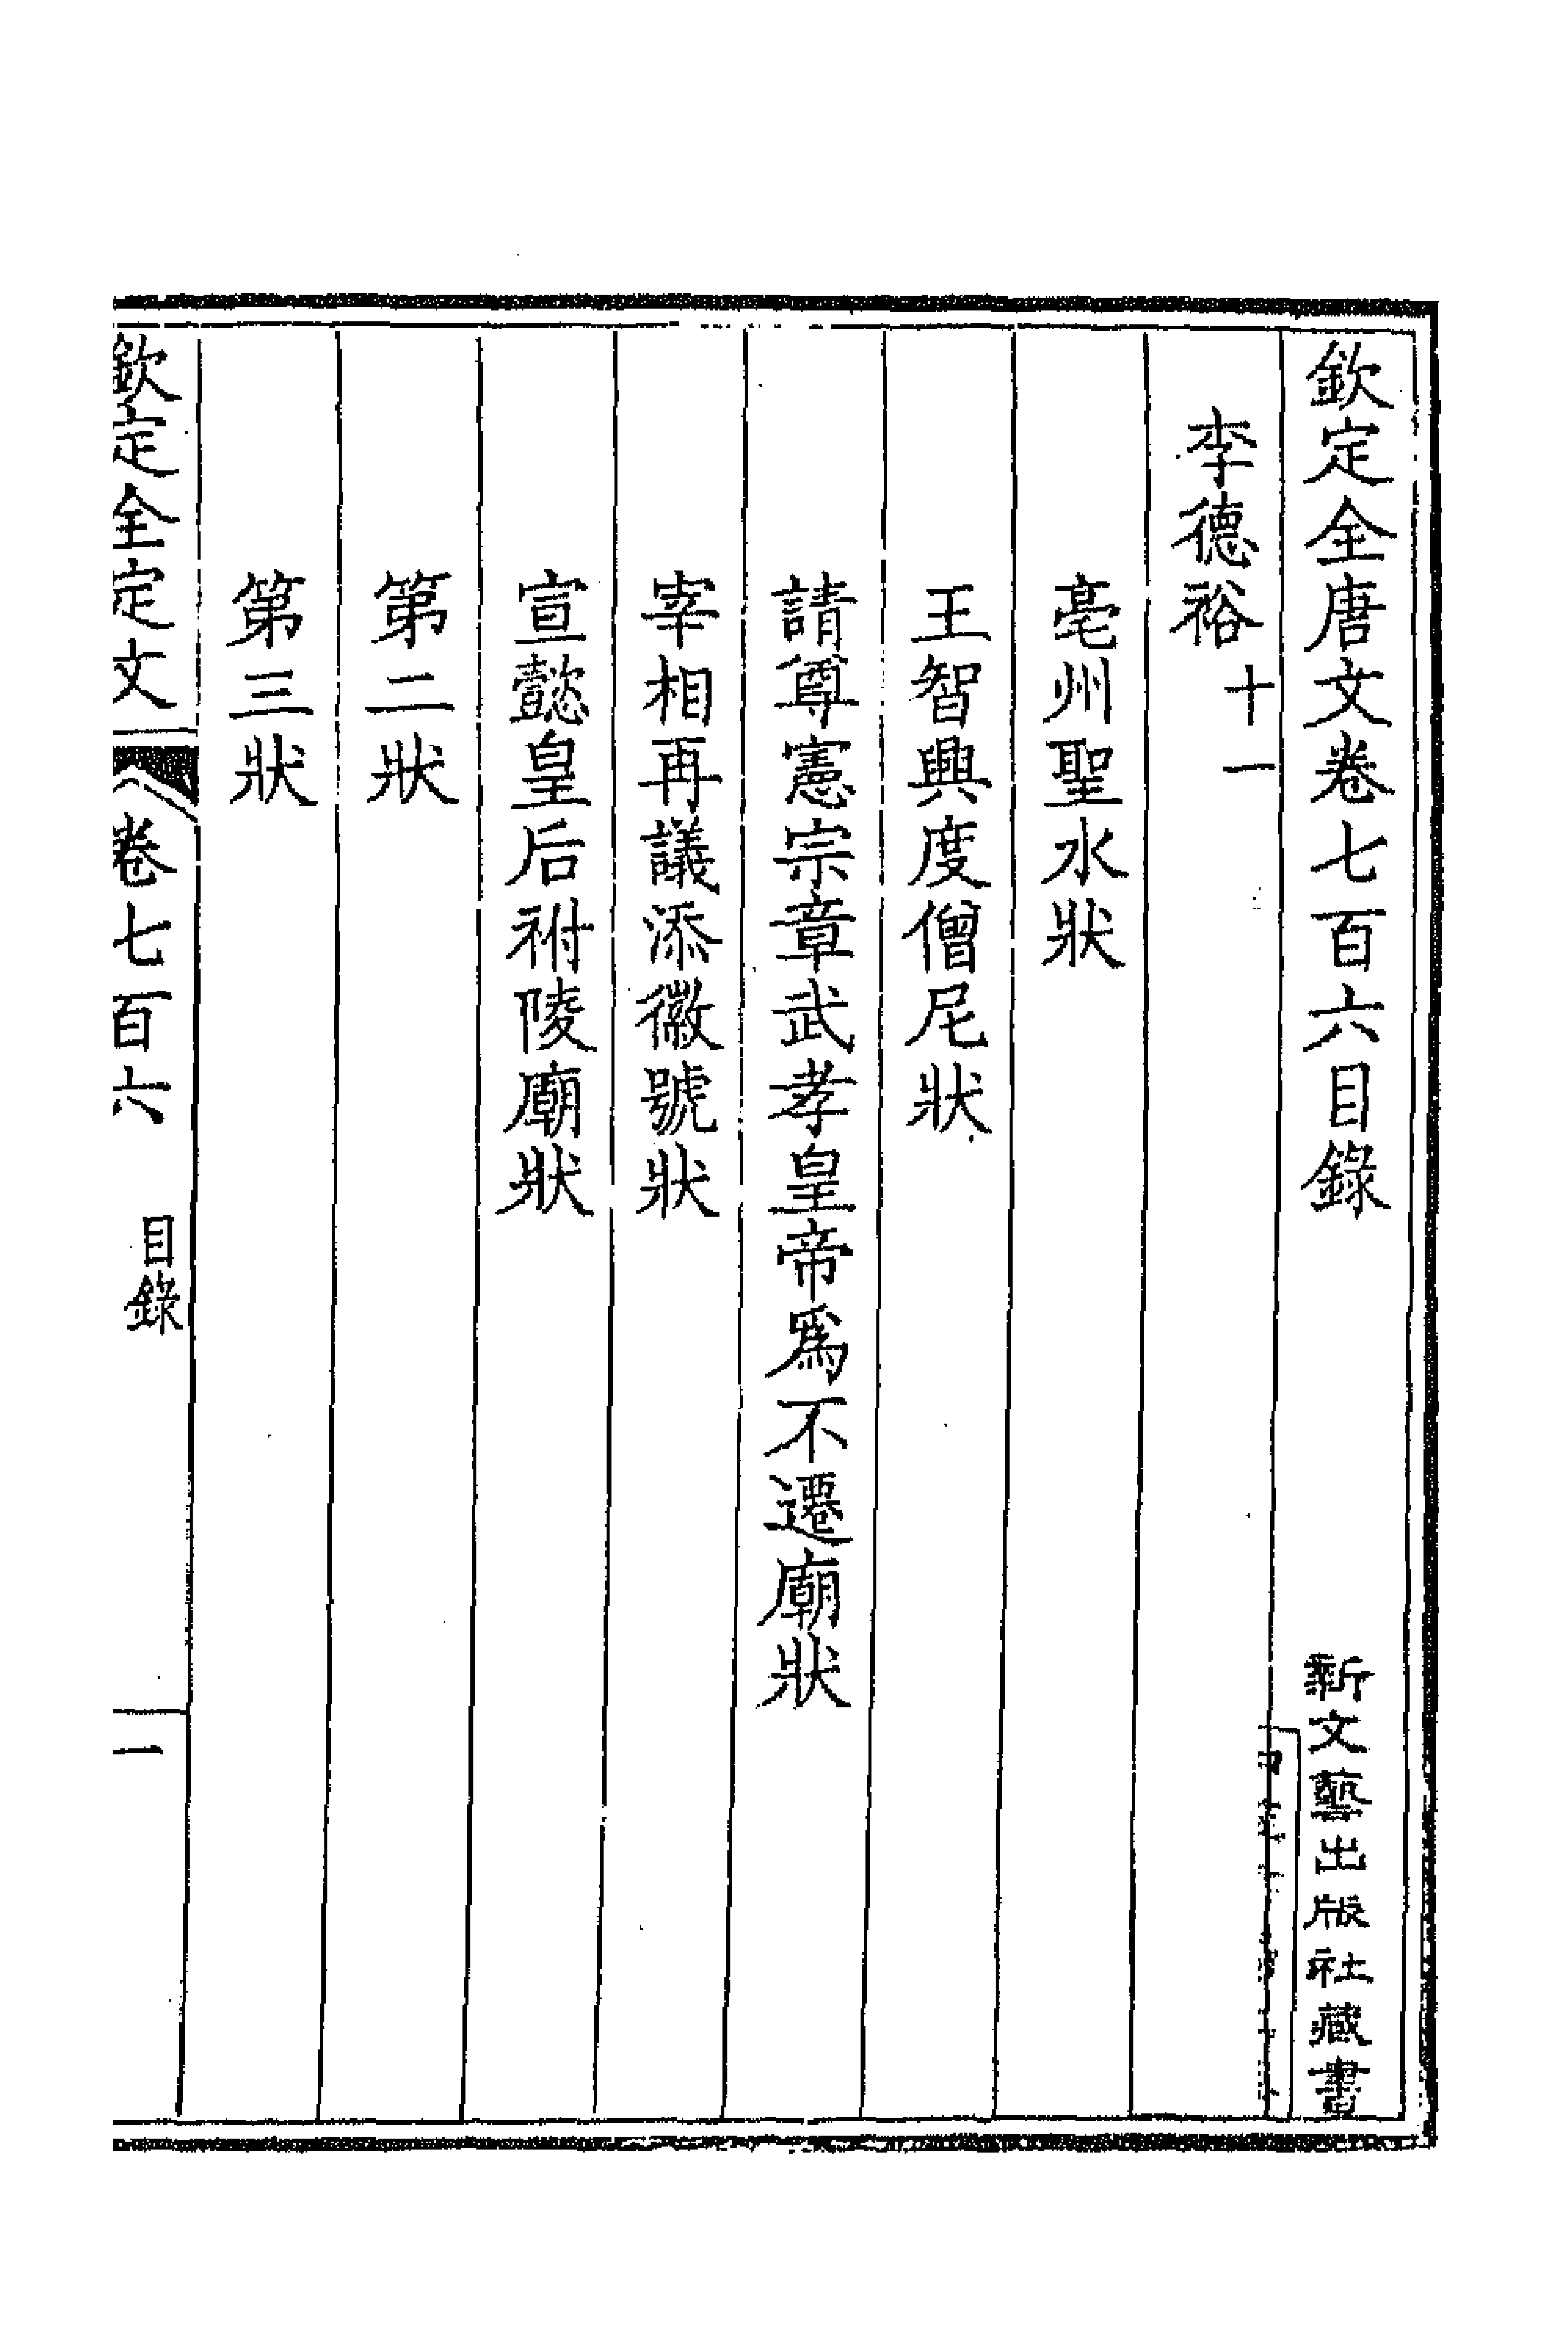 欽定全唐文卷七百六目錄
新文藝出版社藏書
李德裕十一
亳州聖水狀
王智興度僧尼狀
請尊憲宗章武孝皇帝爲不遷廟狀
宰相再議添徽號狀
宣懿皇后祔陵廟狀
第二狀
第三狀
欽定全定文 卷七百六 目錄 一